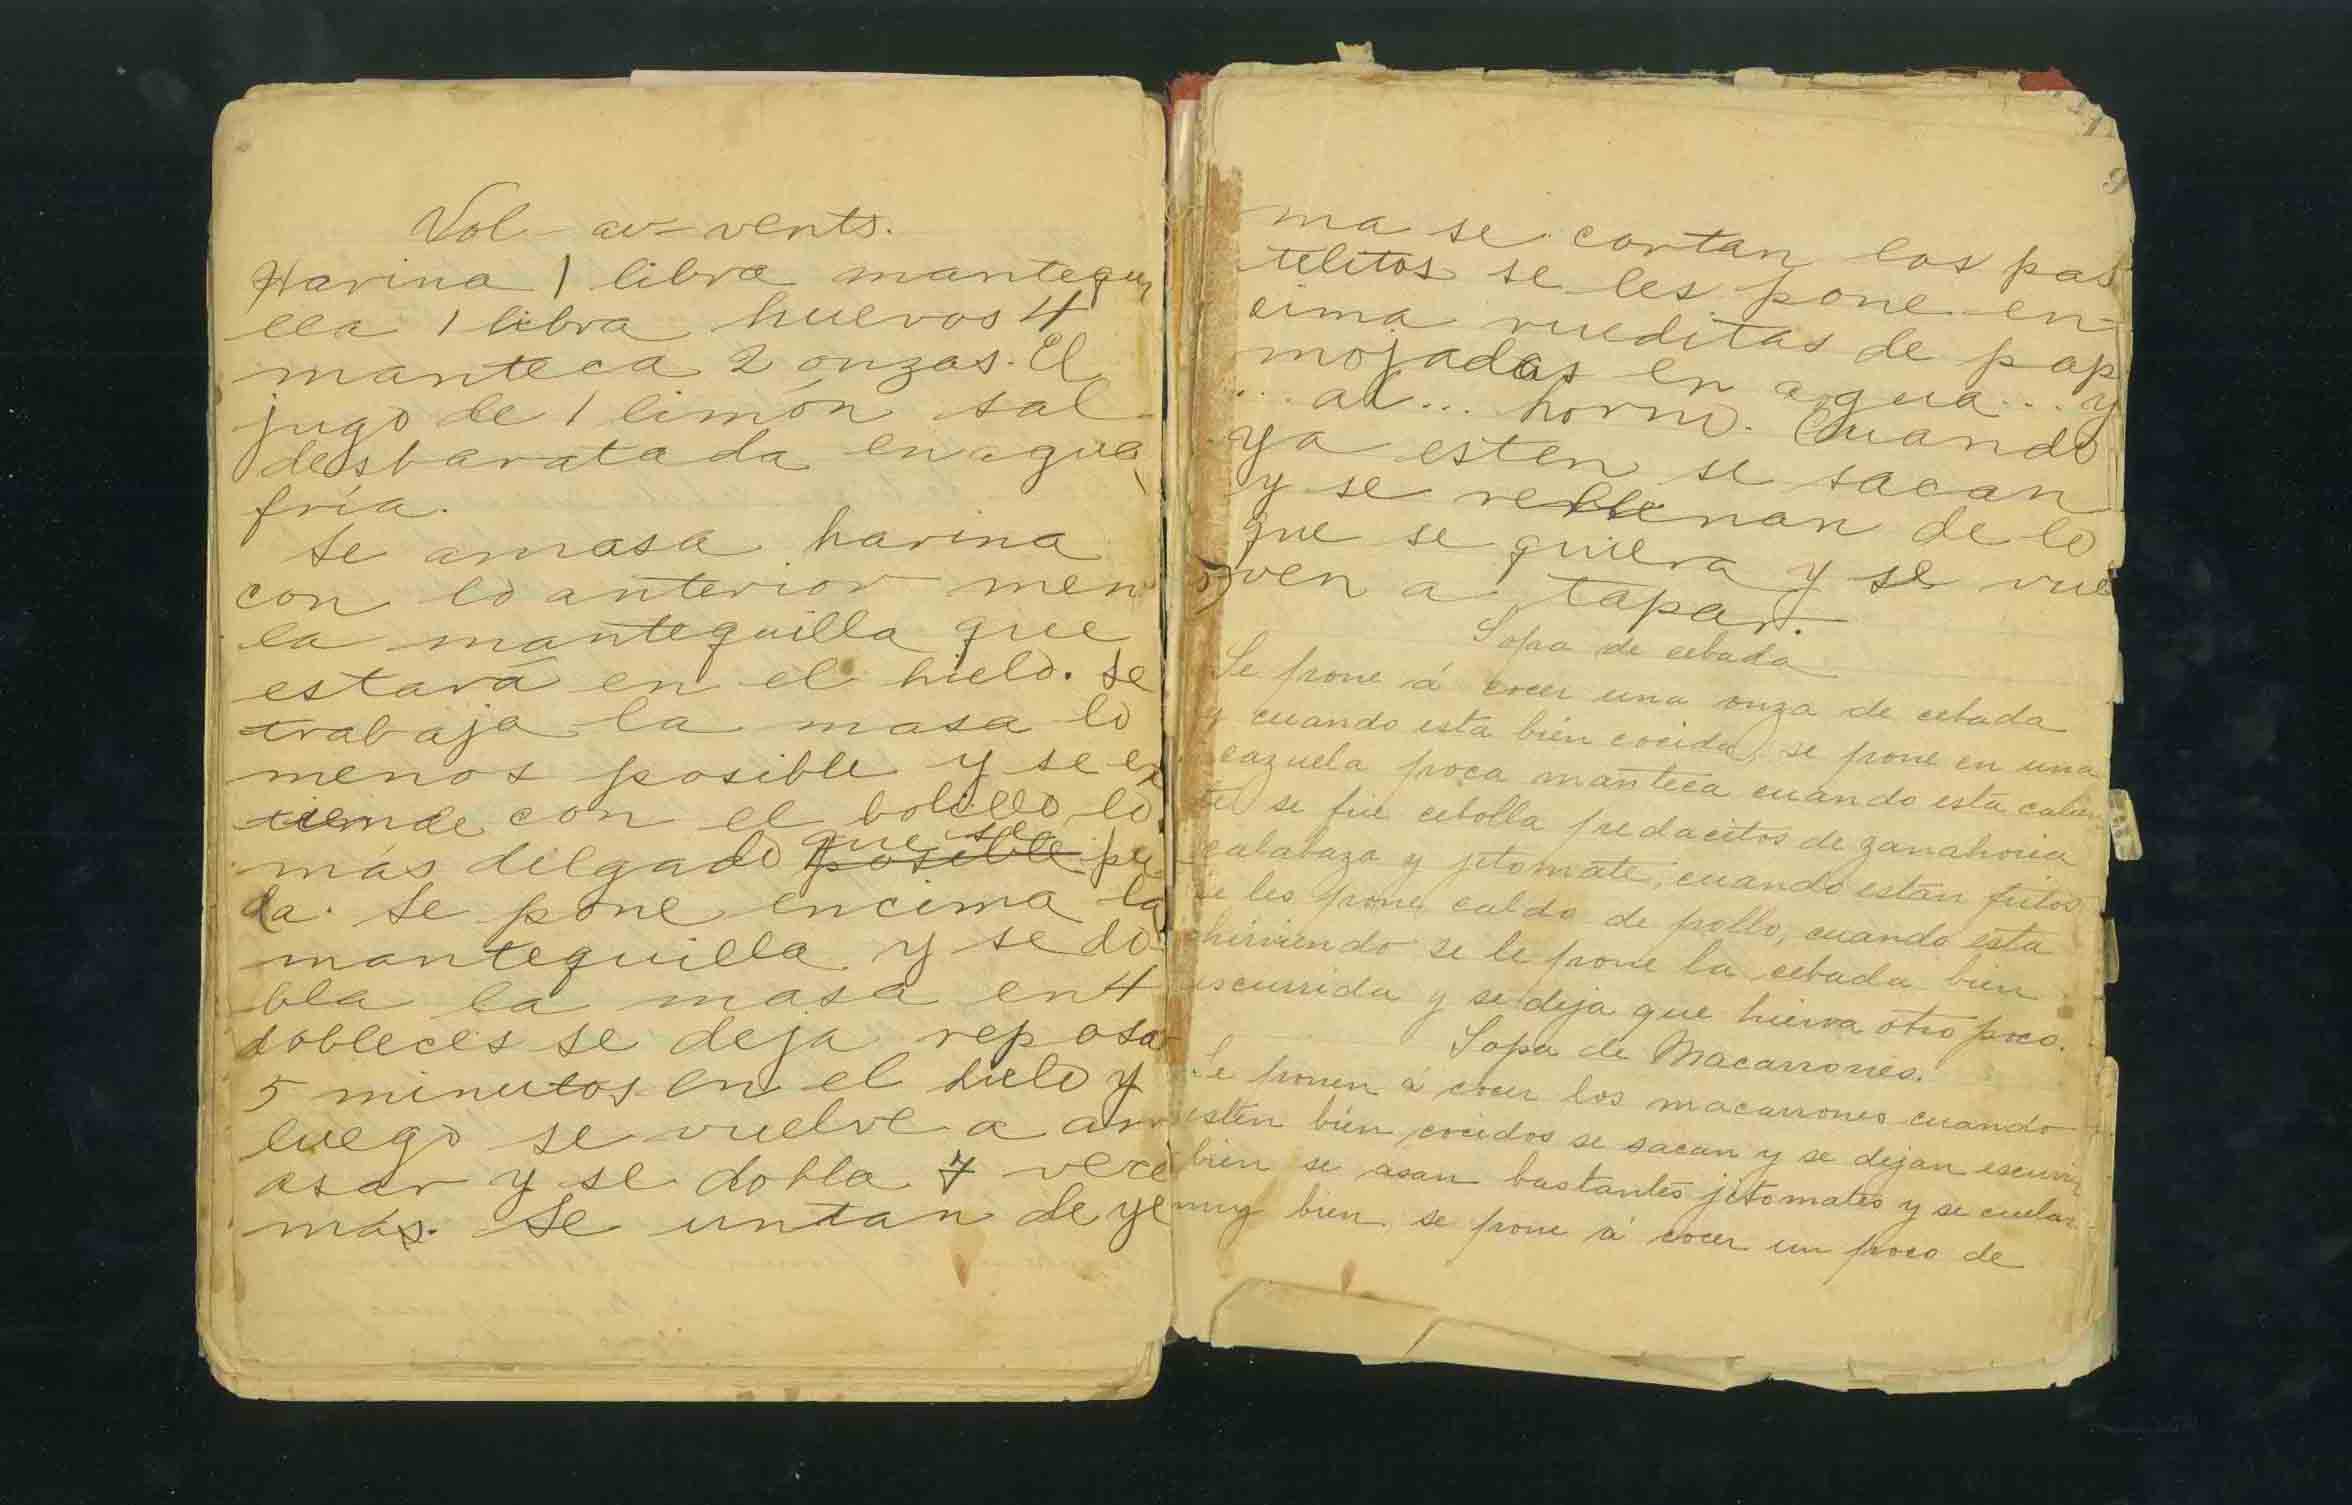 Vol-au-vents.
Harina 1 libra mantequi
lla 1 libra huevos 4
manteca 2 onzas. El
jugo de 1 limón sal
desbaratada en agua
fría.
Se amasa harina
con lo anterior men
la mantequilla que
estará en el hielo. Se
trabaja la masa lo
menos posible y se ex
tiende con el bolillo lo
más delgado posible que se pue
da. Se pone encima la
mantequilla y se do
bla la masa en 4
dobleces se deja reposar
5 minutos en el hielo y
luego se vuelve a am
asar y se dobla 7 vece
más. Se untan de ye
ma se cortan los pas
telitos se les pone en-
cima rueditas de pap
mojadas en agua... y
... al ... horno. Cuando
ya esten se sacan
y se rellenan de lo
que se quiera y se vuel
ven a tapar.
Sopa de cebada
Se pone á cocer una onza de cebada
y cuando esta bién cocida, se pone en una
cazuela poca manteca cuando esta calien
te se frie cebolla pedacitos de zanahoria
calabaza y jitomate; cuando están fritos
se les pone caldo de pollo, cuando esta
hirviendo se le pone la cebada bien
escurrida y se deja que hierva otro poco.
Sopa de Macarrones.
Se ponen á cocer los macarrones cuando
esten bién cocidos se sacan y se dejan escurrir
bien se asan bastantes jitomates y se cuelan
muy bien se pone á cocer un poco de